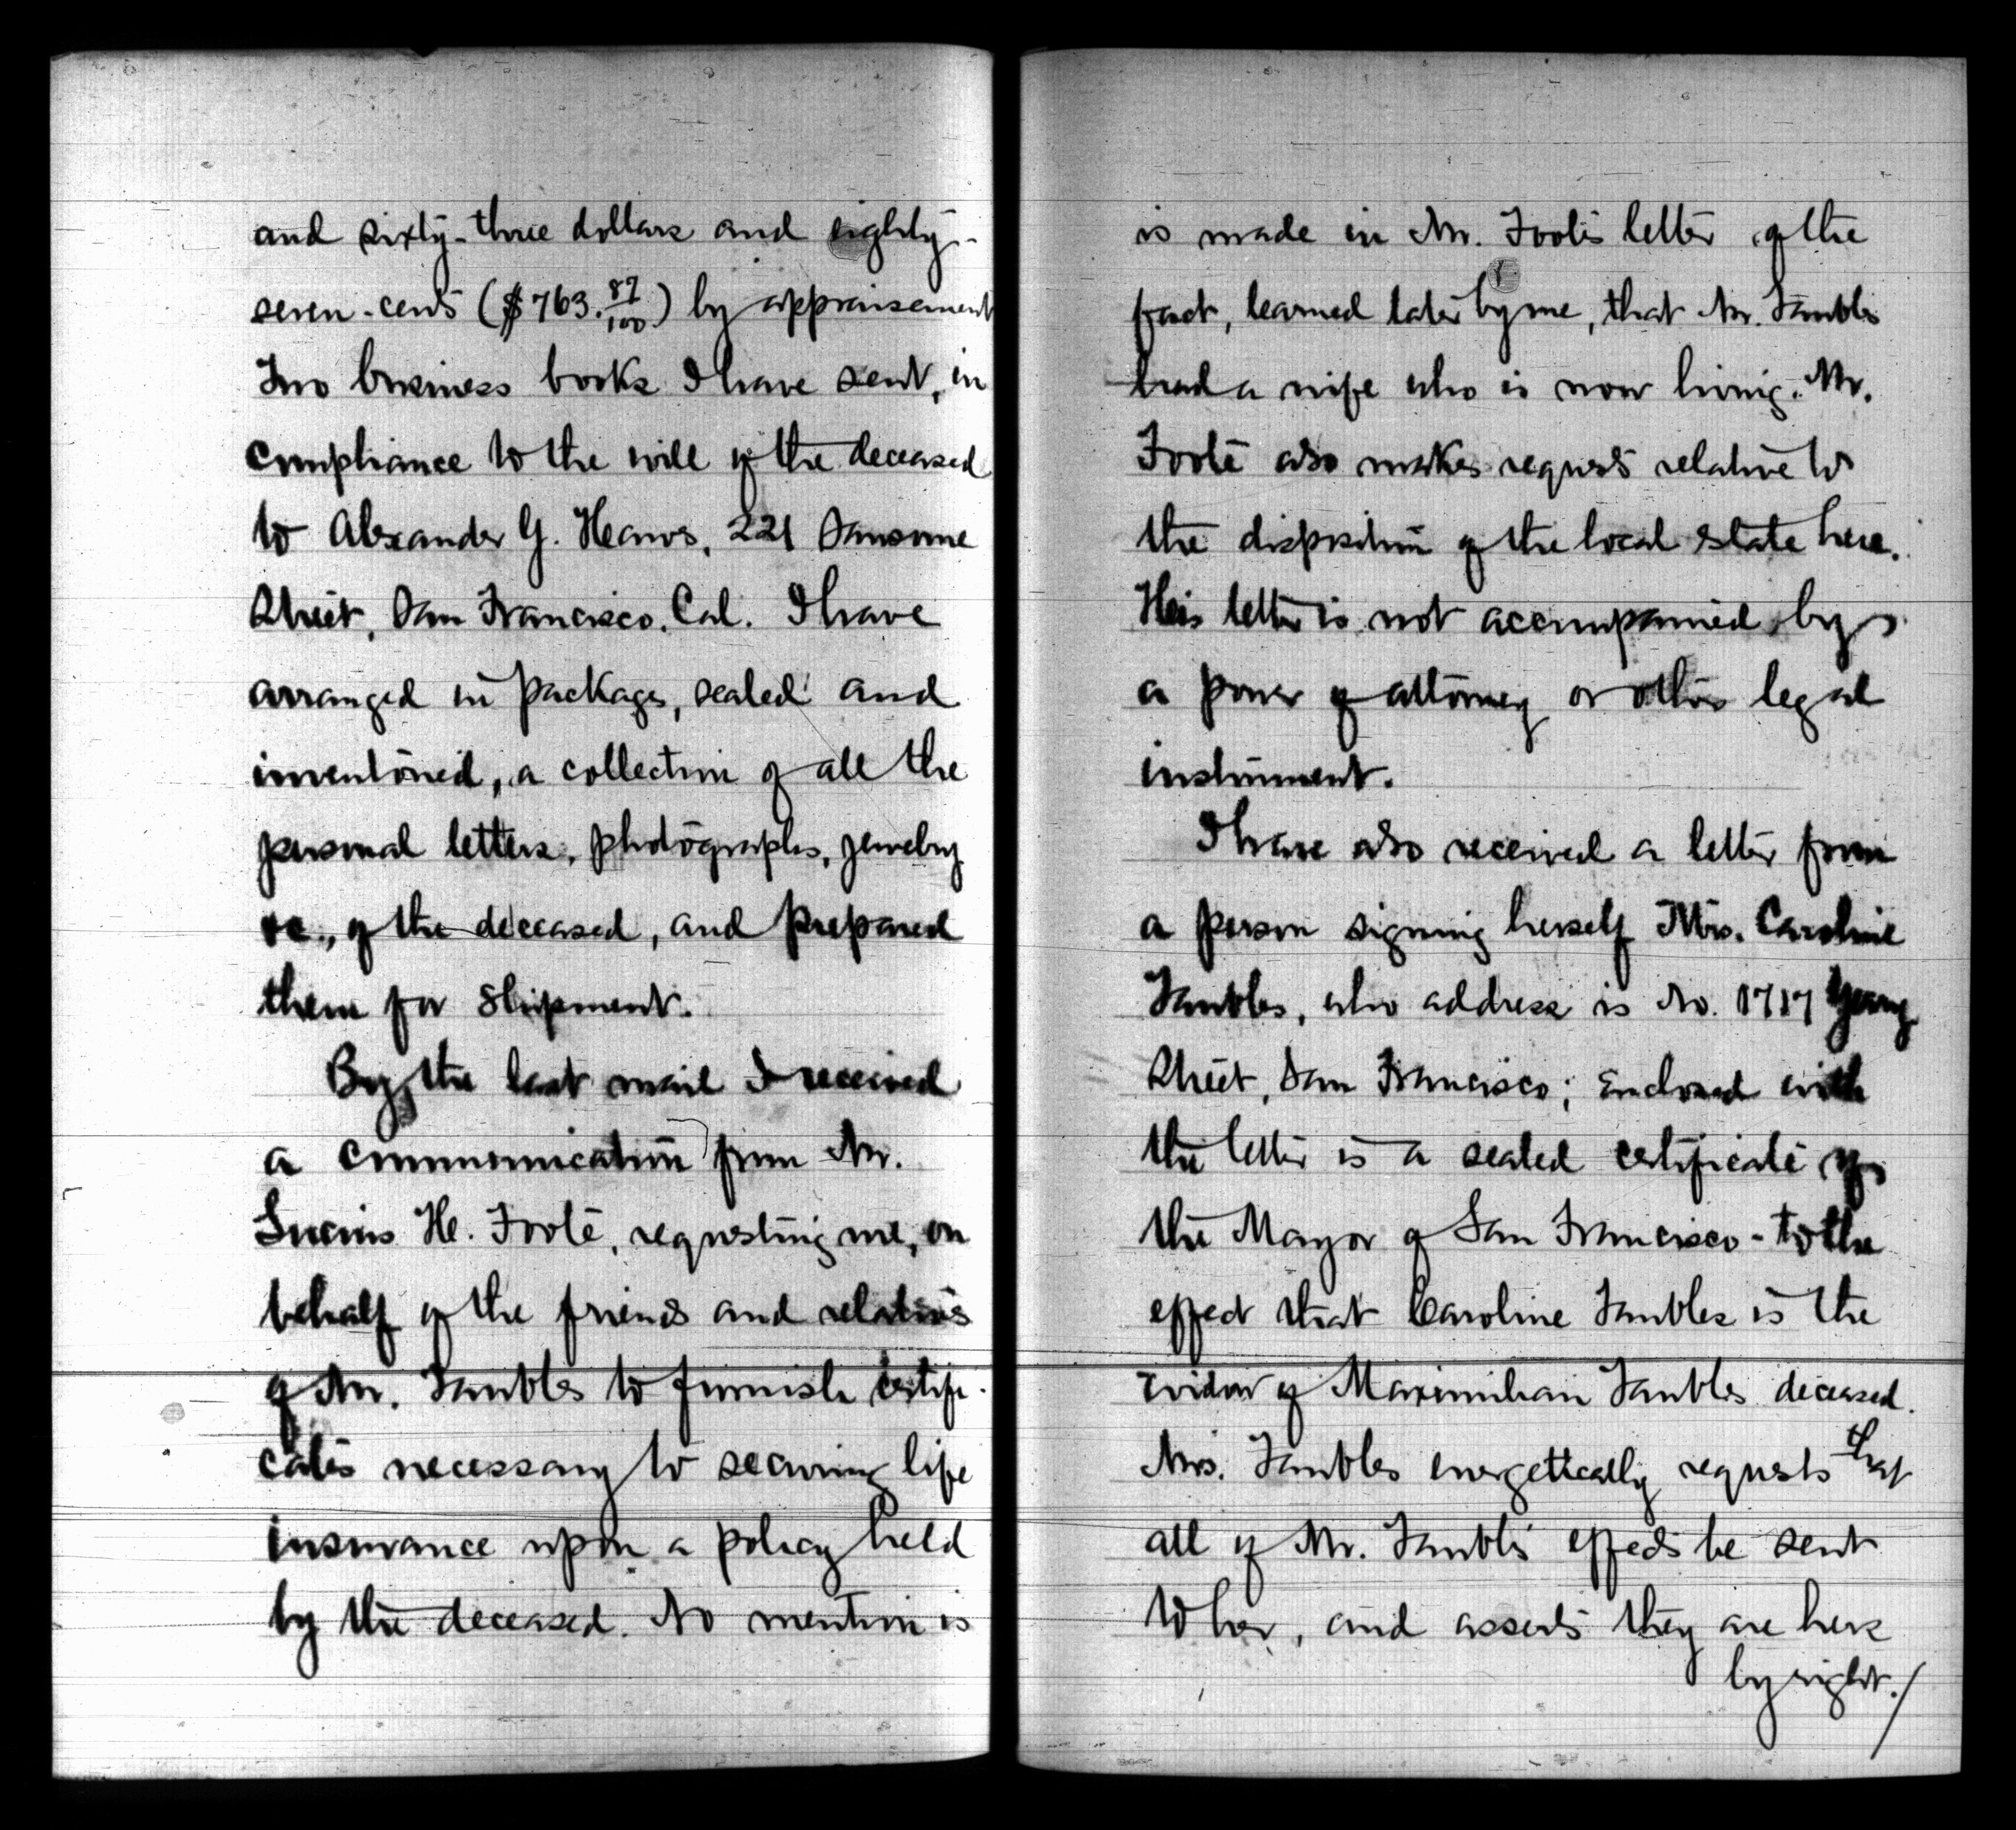 and sixty-three dollars and eighty-
seven-cents ($763.87/100) by appraisement
Two business books I have sent, in
compliance to the will of the deceased
to Alexander G. Heaws, 221 Sansome
Street, San Francisco, Cal. I have
arranged in packages, sealed and
inventoried, a collection of all the
personal letters, photographs, jewelry
&c., of the deceased, and prepared
them for shipment.
By the last mail I received
a communication from Mr.
Lucius H. Foote, requesting me, on
behalf of the friends and relatives
of Mr. Taubles to furnish certifi-
cates necessary to securing life
insurance upon a policy held
by the deceased. No mention is
is made in Mr. Foote's letter of the
fact, learned later by me, that Mr. Taubles
had a wife who is now living. Mr.
Foote also makes requests relative to
the disposition of the local estate here.
His letter is not accompanied by
a power of attorney or other legal
instrument.
I have also received a letter from
a person signing herself Mrs. Caroline
Taubles, who address is No. 1717 Geary
Street, San Francisco; Enclosed with
the letter is a sealed certificate of
the Mayor of San Francisco - to the
effect that Caroline Taubles is the
widow of Maximilian Taubles deceased.
Mrs. Taubles energetically requests that
all of Mr. Taubles' effects be sent
to her, and asserts they are hers
by right./